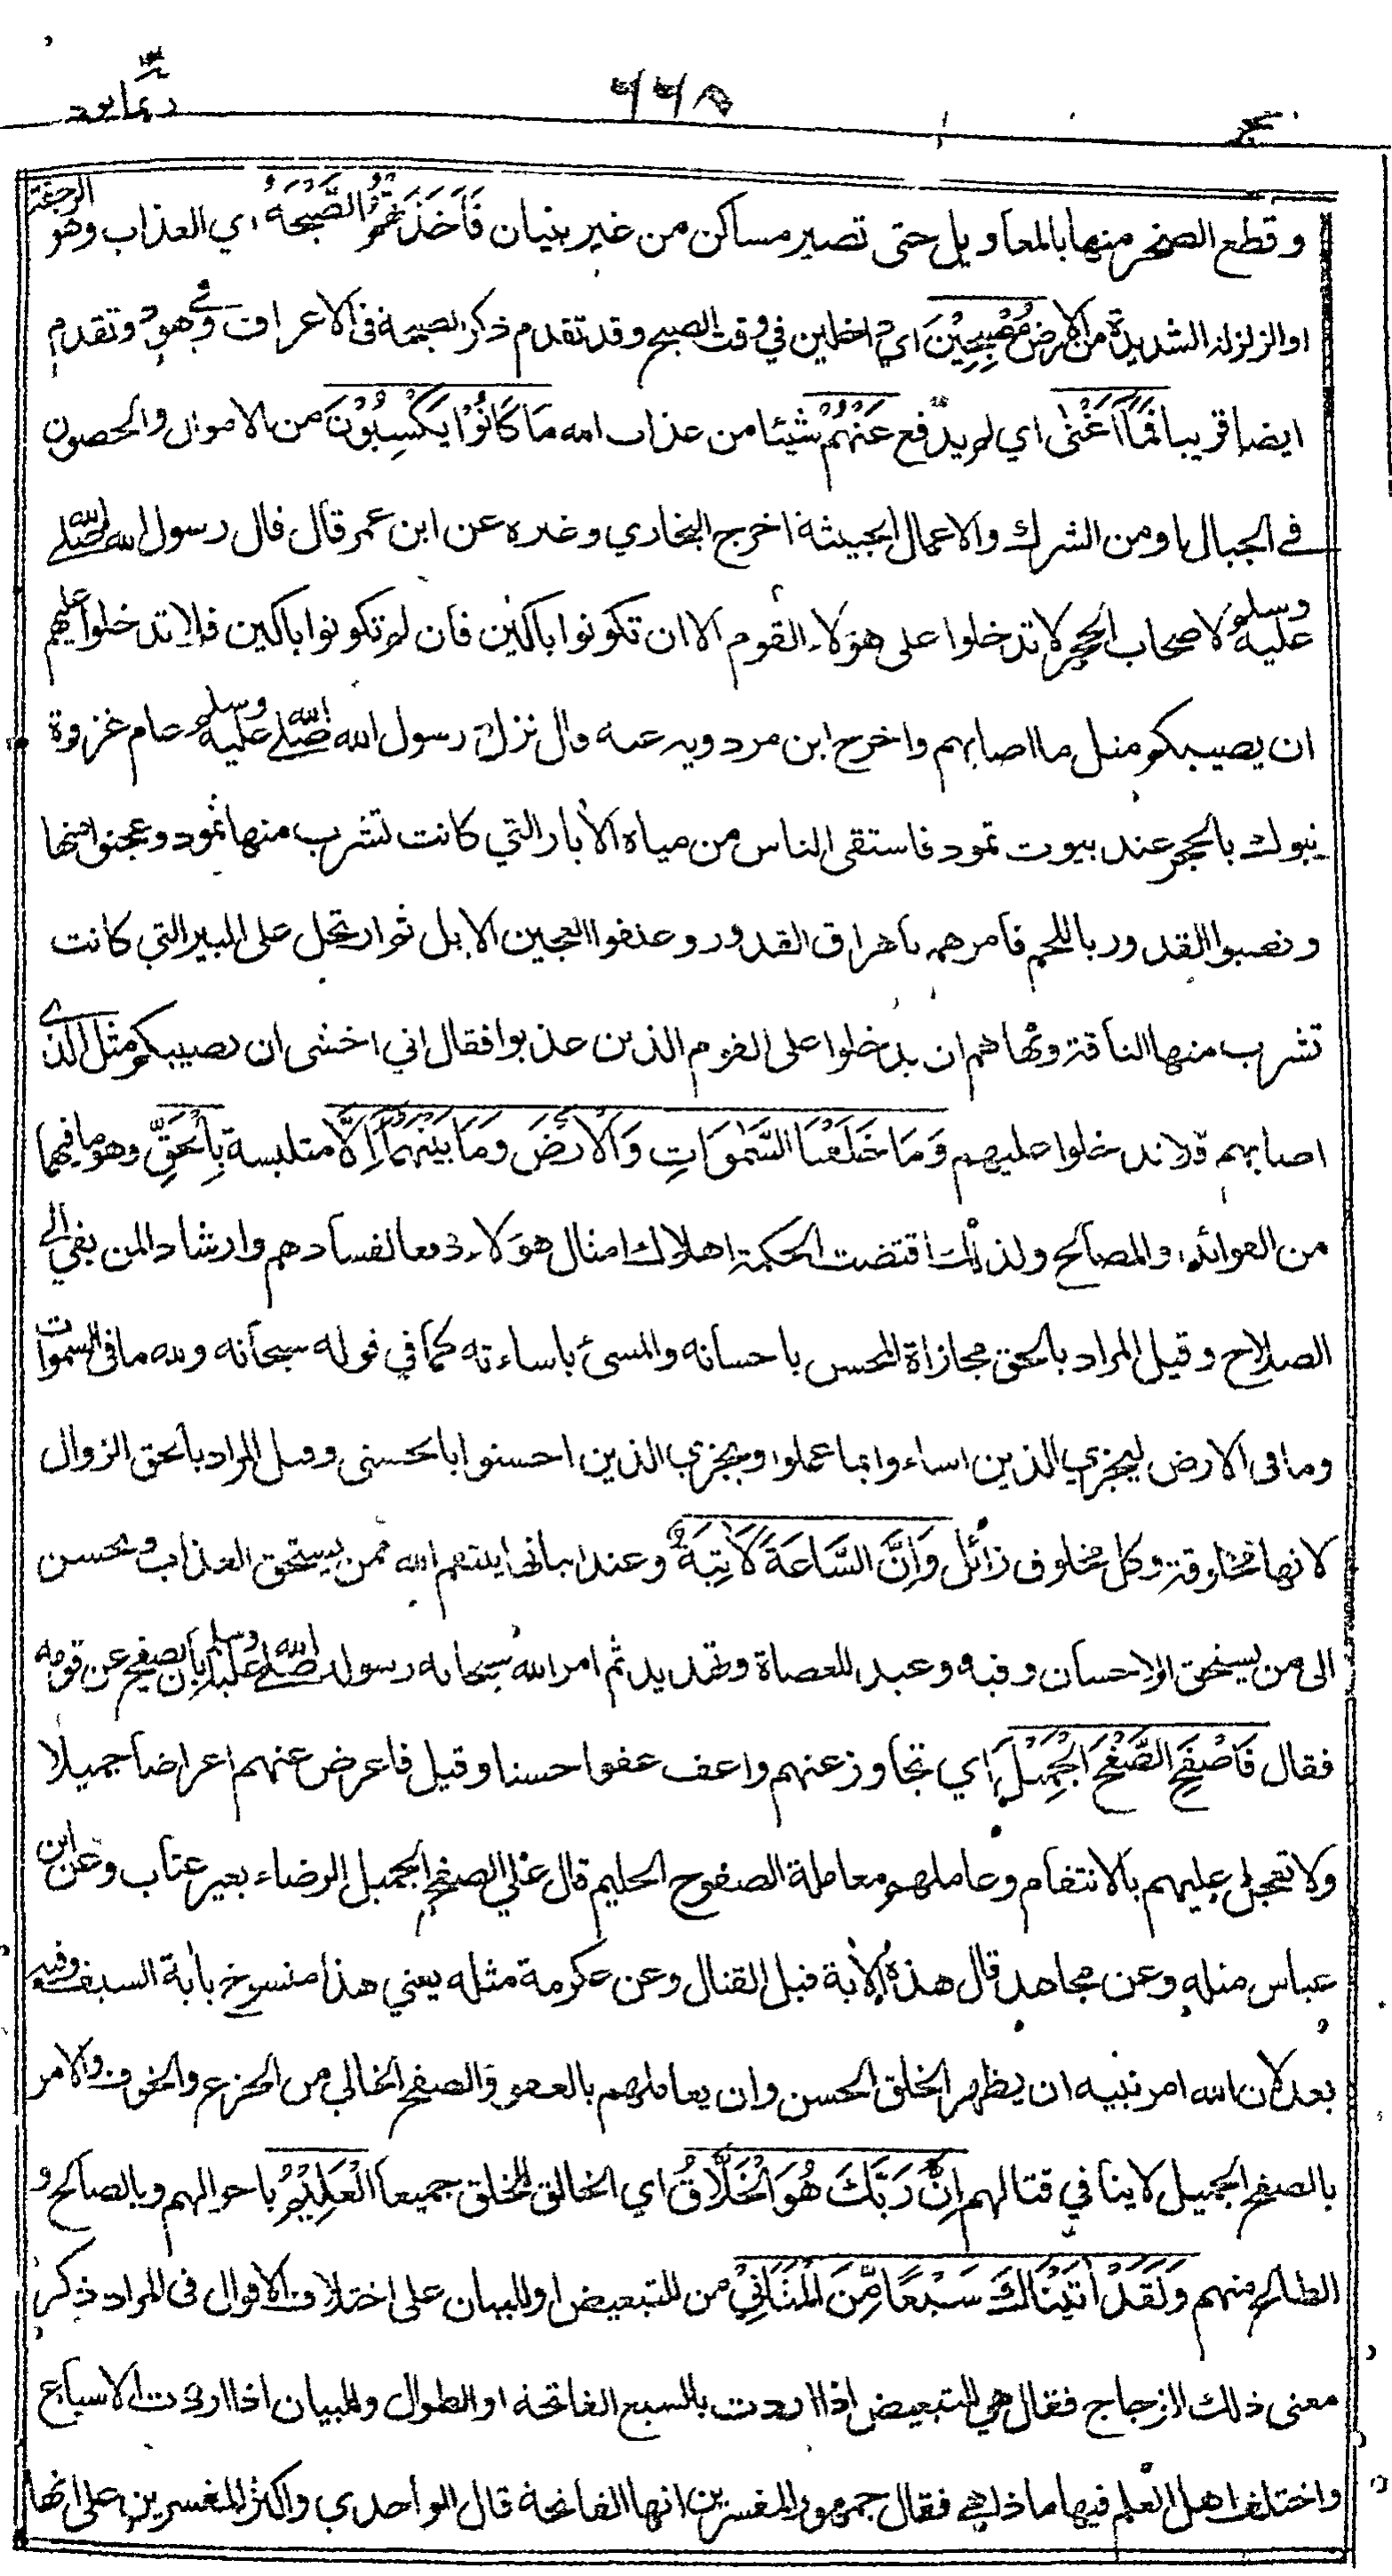 ربما يود ٦٦٨ حجر
وقطع الصخر منها بالمعاويل حتى تصير مساكن من غير بنيان فَأَخَذَتْهُمُ الصَّيْحَةُ اي العذاب وهو الرجفة
او الزلزلة الشديدة من الارض مُصْبِحِيْنَ اي داخلين في وقت الصبح وقد تقدم ذكر الصيحة فى الاعراف وفي هود وتقدم
ايضا قريبا فَمَآ اَغْنٰى اي لم يدفع عَنْهُمْ شيئا من عذاب الله مَا كَانُوْا يَكْسِبُوْنَ من الاموال والحصون
في الجبال او من الشرك والاعمال الخبيثة اخرج البخاري وغيره عن ابن عمر قال قال رسول الله صلى الله
عليه وسلم لاصحاب الحجر لا تدخلوا على هؤلاء القوم الا ان تكونوا باكين فان لم تكونوا باكين فلا تدخلوا عليهم
ان يصيبكم مثل ما اصابهم واخرج ابن مردويه عنه قال نزل رسول الله صلى الله عليه وسلم عام غزوة
تبوك بالحجر عند بيوت ثمود فاستقى الناس من مياه الأبار التي كانت تشرب منها ثمود وعجنوا منها
ونصبوا القدور باللحم فامرهم باهراق القدور وعلفوا العجين الابل ثم ارتحل على البير التي كانت
تشرب منها الناقة ونهاهم ان يدخلوا على القوم الذين عذبوا فقال اني اخشى ان يصيبكم مثل الذي
اصابهم فلا تدخلوا عليهم وَمَا خَلَقْنَا السَّمٰوَاتِ وَالْاَرْضَ وَمَا بَيْنَهُمَآ اِلَّا متلبسة بِالْحَقِّ وهو ما فيهما
من الفوائد والمصالح ولذلك اقتضت الحكمة اهلاك امثال هؤلاء دفعا لفسادهم وارشادا لمن بقي الى
الصلاح وقيل المراد بالحق مجازاة المحسن باحسانه والمسئ باساءته كما في قوله سبحانه ولله ما فى السموات
وما فى الارض ليجزي الذين اساءوا بما عملوا ويجزي الذين احسنوا بالحسنى وقيل المراد بالحق الزوال
لانها مخلوقة وكل مخلوق زائل وَاِنَّ السَّاعَةَ لَاٰتِيَةٌ وعند اتيانها ينتقم الله ممن يستحق العذاب ويحسن
الى من يستحق الاحسان وفيه وعيد للعصاة وتهديد ثم امر الله سبحانه رسوله صلى الله عليه وسلم بأن يصفح عن قومه
فقال فَاصْفَحِ الصَّفْحَ الْجَمِيْلَ اي تجاوز عنهم واعف عفوا حسنا وقيل فاعرض عنهم اعراضا جميلا
ولا تعجل عليهم بالانتقام وعاملهم معاملة الصفوح الحليم قال علي الصفح الجميل الرضاء بغير عتاب وعن ابن
عباس مثله وعن مجاهد قال هذه الأية قبل القتال وعن عكرمة مثله يعني هذا منسوخ بأية السيف وفيه
بعد لان الله امر نبيه ان يظهر الخلق الحسن وان يعاملهم بالعفو والصفح الخالي من الجزع والخوف والامر
بالصفح الجميل لا ينافي قتالهم اِنَّ رَبَّكَ هُوَ الْخَلَّاقُ اي الخالق للخلق جميعا الْعَلِيْمُ باحوالهم وبالصالح و
الطالح منهم وَلَقَدْ اٰتَيْنَاكَ سَبْعًا مِّنَ الْمَثَانِيْ من للتبعيض او للبيان على اختلاف الاقوال فى المراد ذكر
معنى ذلك الزجاج فقال هي للتبعيض اذا اردت بالسبع الفاتحة او الطوال وللبيان اذا اردت الاسباع
واختلف اهل العلم فيها ماذا هي فقال جمهور المفسرين انها الفاتحة قال الواحدي واكثر المفسرين على انها